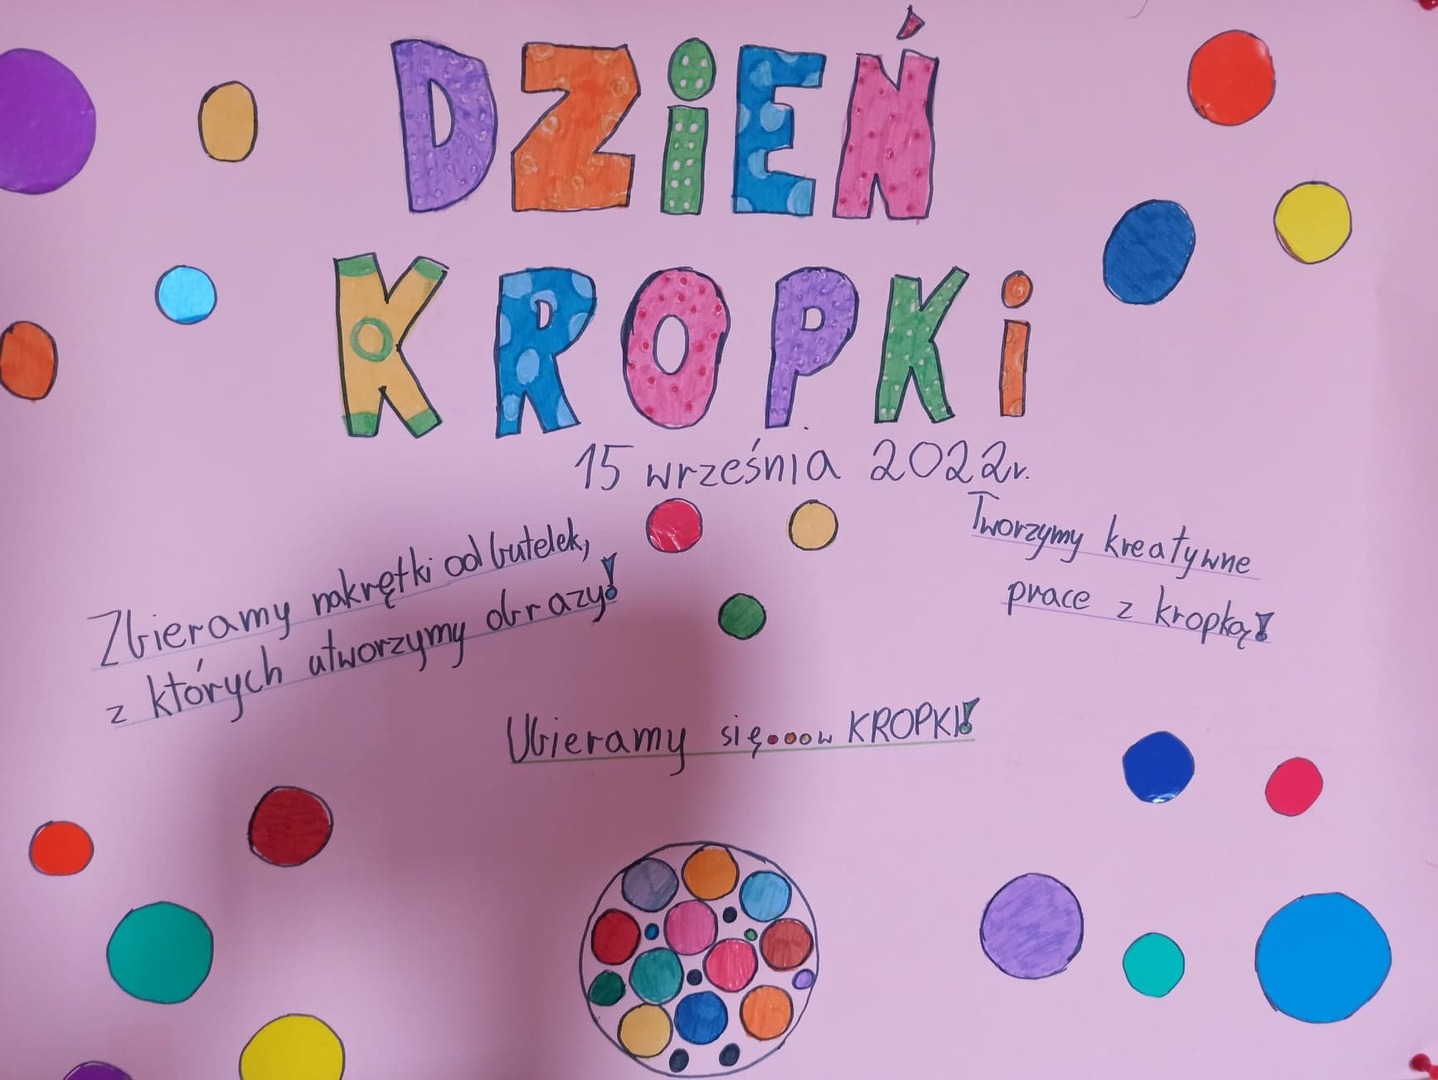 DZiEŃ
KROPKi
15 września 2022r.
Zbieramy nakrętki od butelek,
z których utworzymy obrazy!
Tworzymy kreatywne
prace z kropką!
Ubieramy się...w KROPKI!